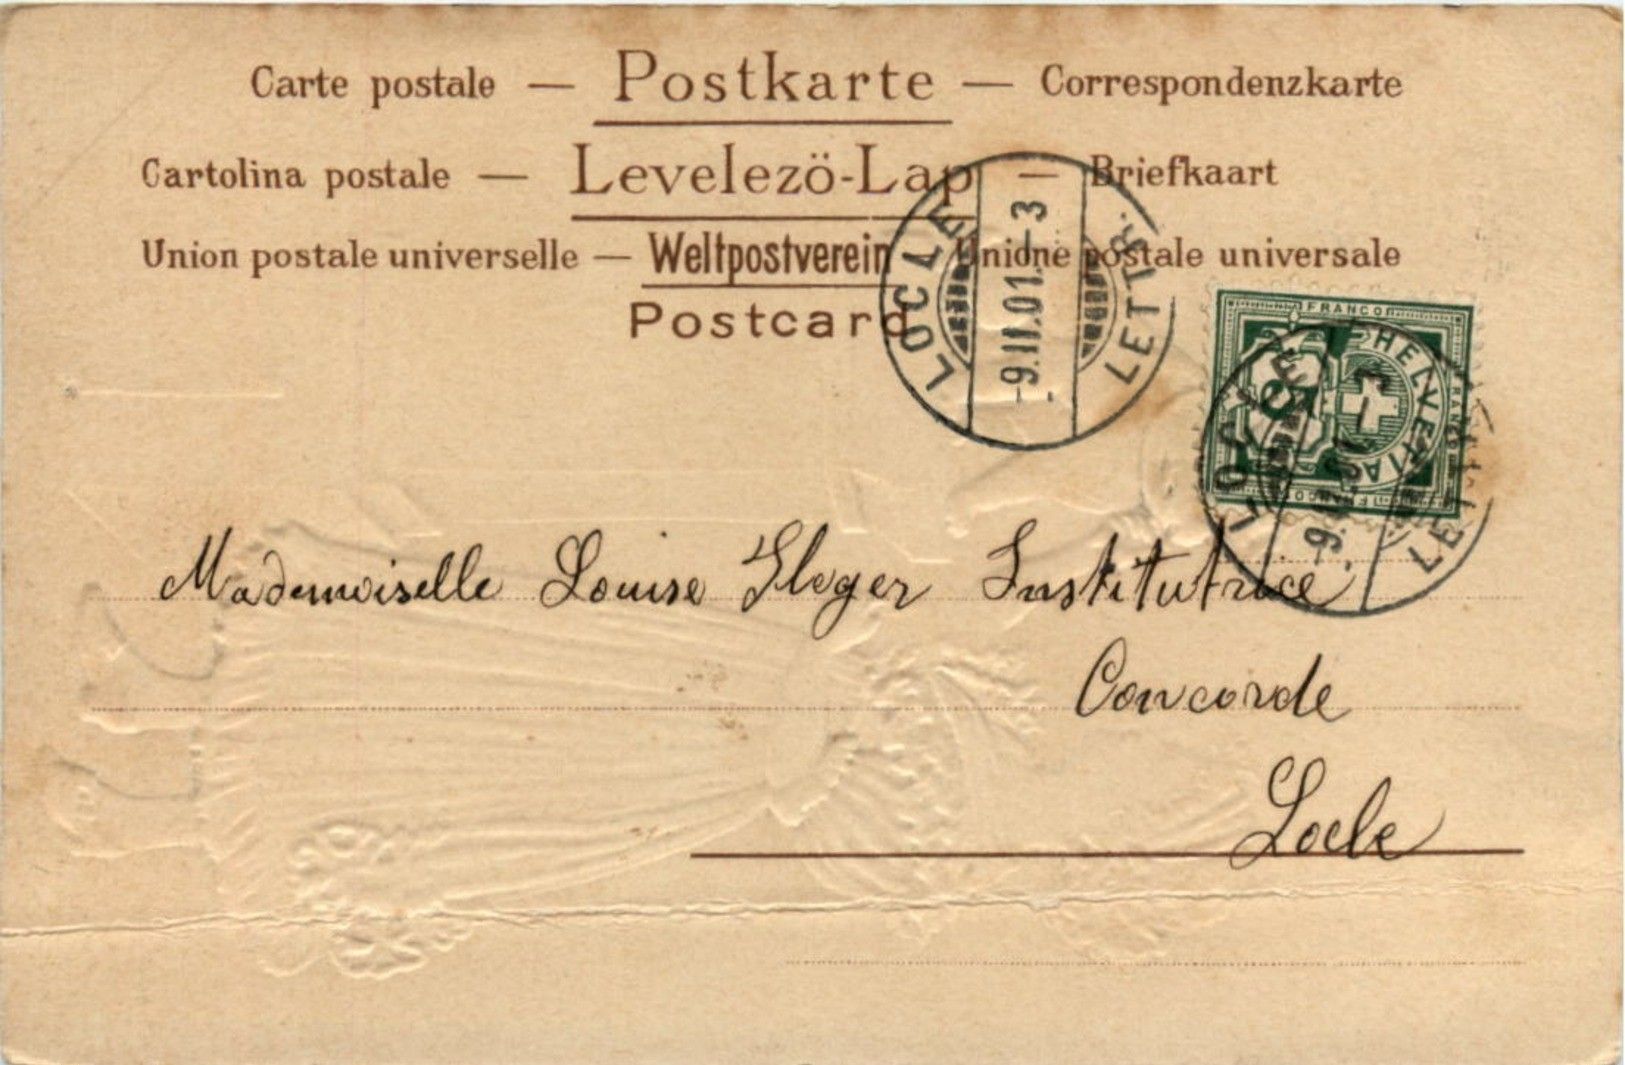 Carte postale — Postkarte — Correspondenzkarte
Cartolina postale — Levelezö-Lap — Briefkaart
Union postale universelle — Weltpostverein — Unione postale universale
Postcard
LOCLE
-9.II.01.-3
LETTR.
FRANCO
HELVETIA
FRANCO
5
LOCLE
LETTR.
Mademoiselle Louise Institutrice
Concorde
Locle